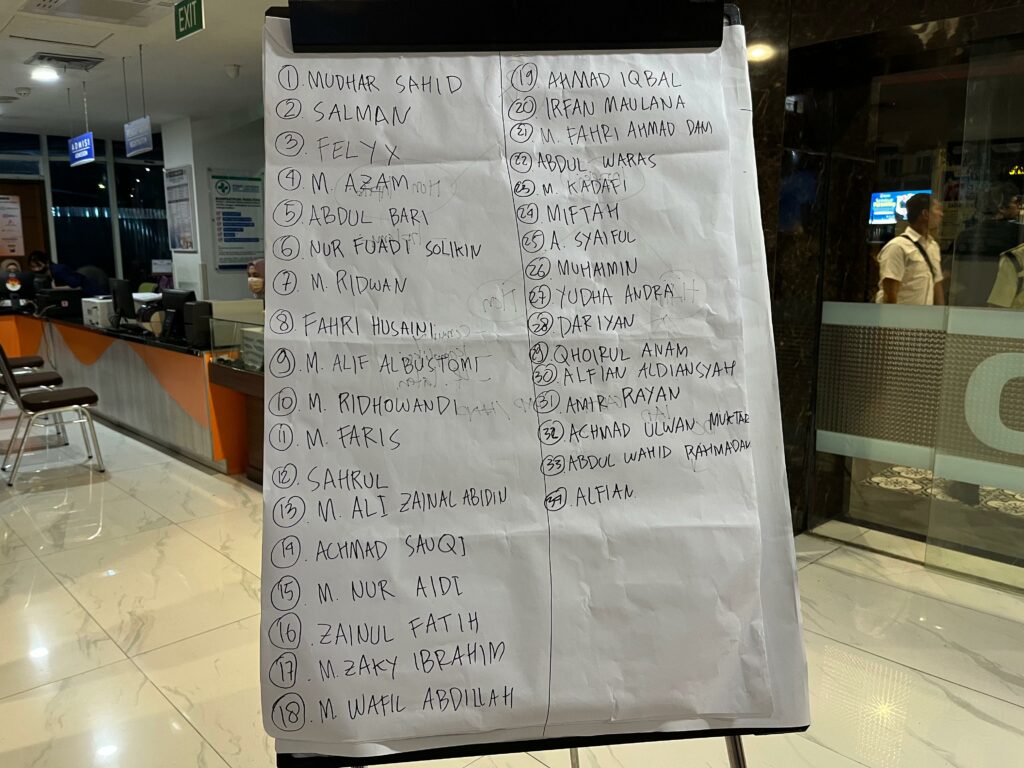 EXIT
ADMISI
1. MUDHAR SAHID
2. SALMAN
3. FELYX
4. M. AZAM
5. ABDUL BARI
6. NUR FUADI SOLIKIN
7. M. RIDWAN
8. FAHRI HUSAINI
9. M. ALIF ALBUSTOMI
10. M. RIDHOWANDI
11. M. FARIS
12. SAHRUL
13. M. ALI ZAINAL ABIDIN
14. ACHMAD SAUQI
15. M. NUR AIDI
16. ZAINUL FATIH
17. M. ZAKY IBRAHIM
18. M. WAFIL ABDILLAH
19. AHMAD IQBAL
20. IRFAN MAULANA
21. M. FAHRI AHMAD DAM
22. ABDUL WARAS
23. M. KADAFI
24. MIFTAH
25. A. SYAIFUL
26. MUHAIMIN
27. YUDHA ANDRA
28. DARIYAN
29. QHOIRUL ANAM
30. ALFIAN ALDIANSYAH
31. AMIR RAYAN
32. ACHMAD ULWAN MUKTAR
33. ABDUL WAHID RAHMADAN
34. ALFIAN